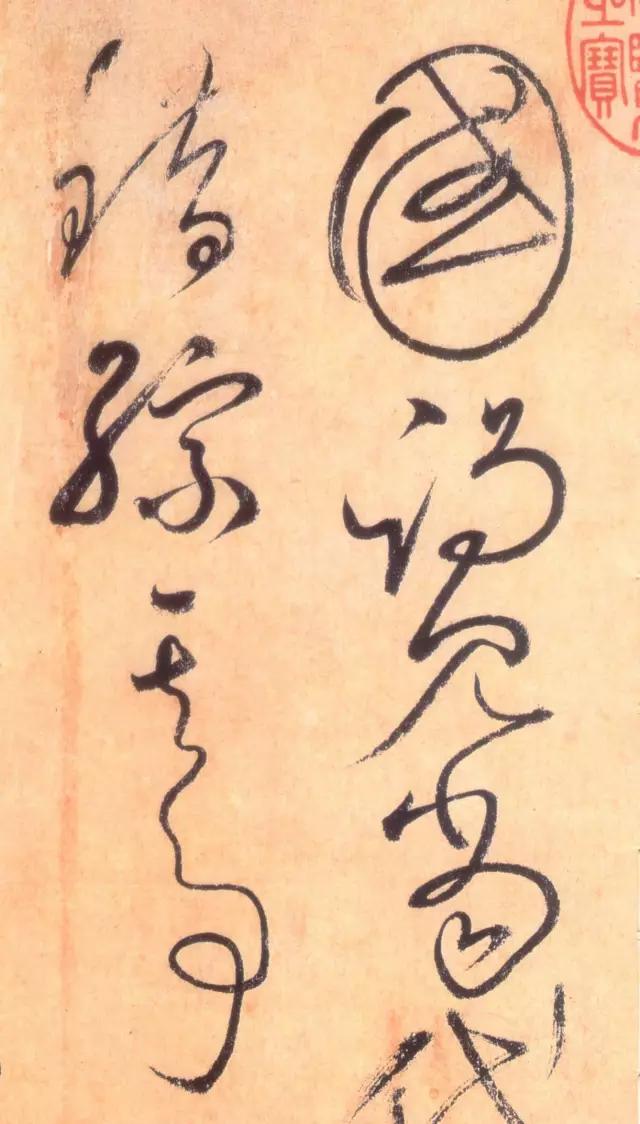 寶
國謁見當代
錯綜其事